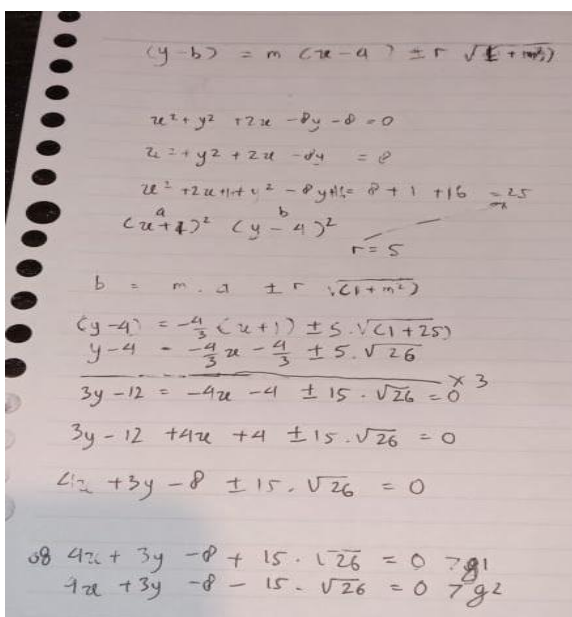 (y-b) = m (x-a) ± r √(1 + m²)
x² + y² + 2x - 8y - 8 = 0
x² + y² + 2x - 8y = 8
x² + 2x + 1 + y² - 8y + 16 = 8 + 1 + 16 = 25
a b
(x+1)² (y-4)²
r = 5
b = m . a ± r √(1+m²)
(y-4) = -4/3 (x+1) ± 5.√(1+25)
y-4 = -4/3x - 4/3 ± 5.√26
x 3
3y-12 = -4x -4 ± 15 . √26 = 0
3y-12 +4x +4 ± 15.√26 = 0
4x +3y -8 ± 15. √26 = 0
4x + 3y -8 + 15. √26 = 0 > g1
4x + 3y -8 - 15. √26 = 0 > g2